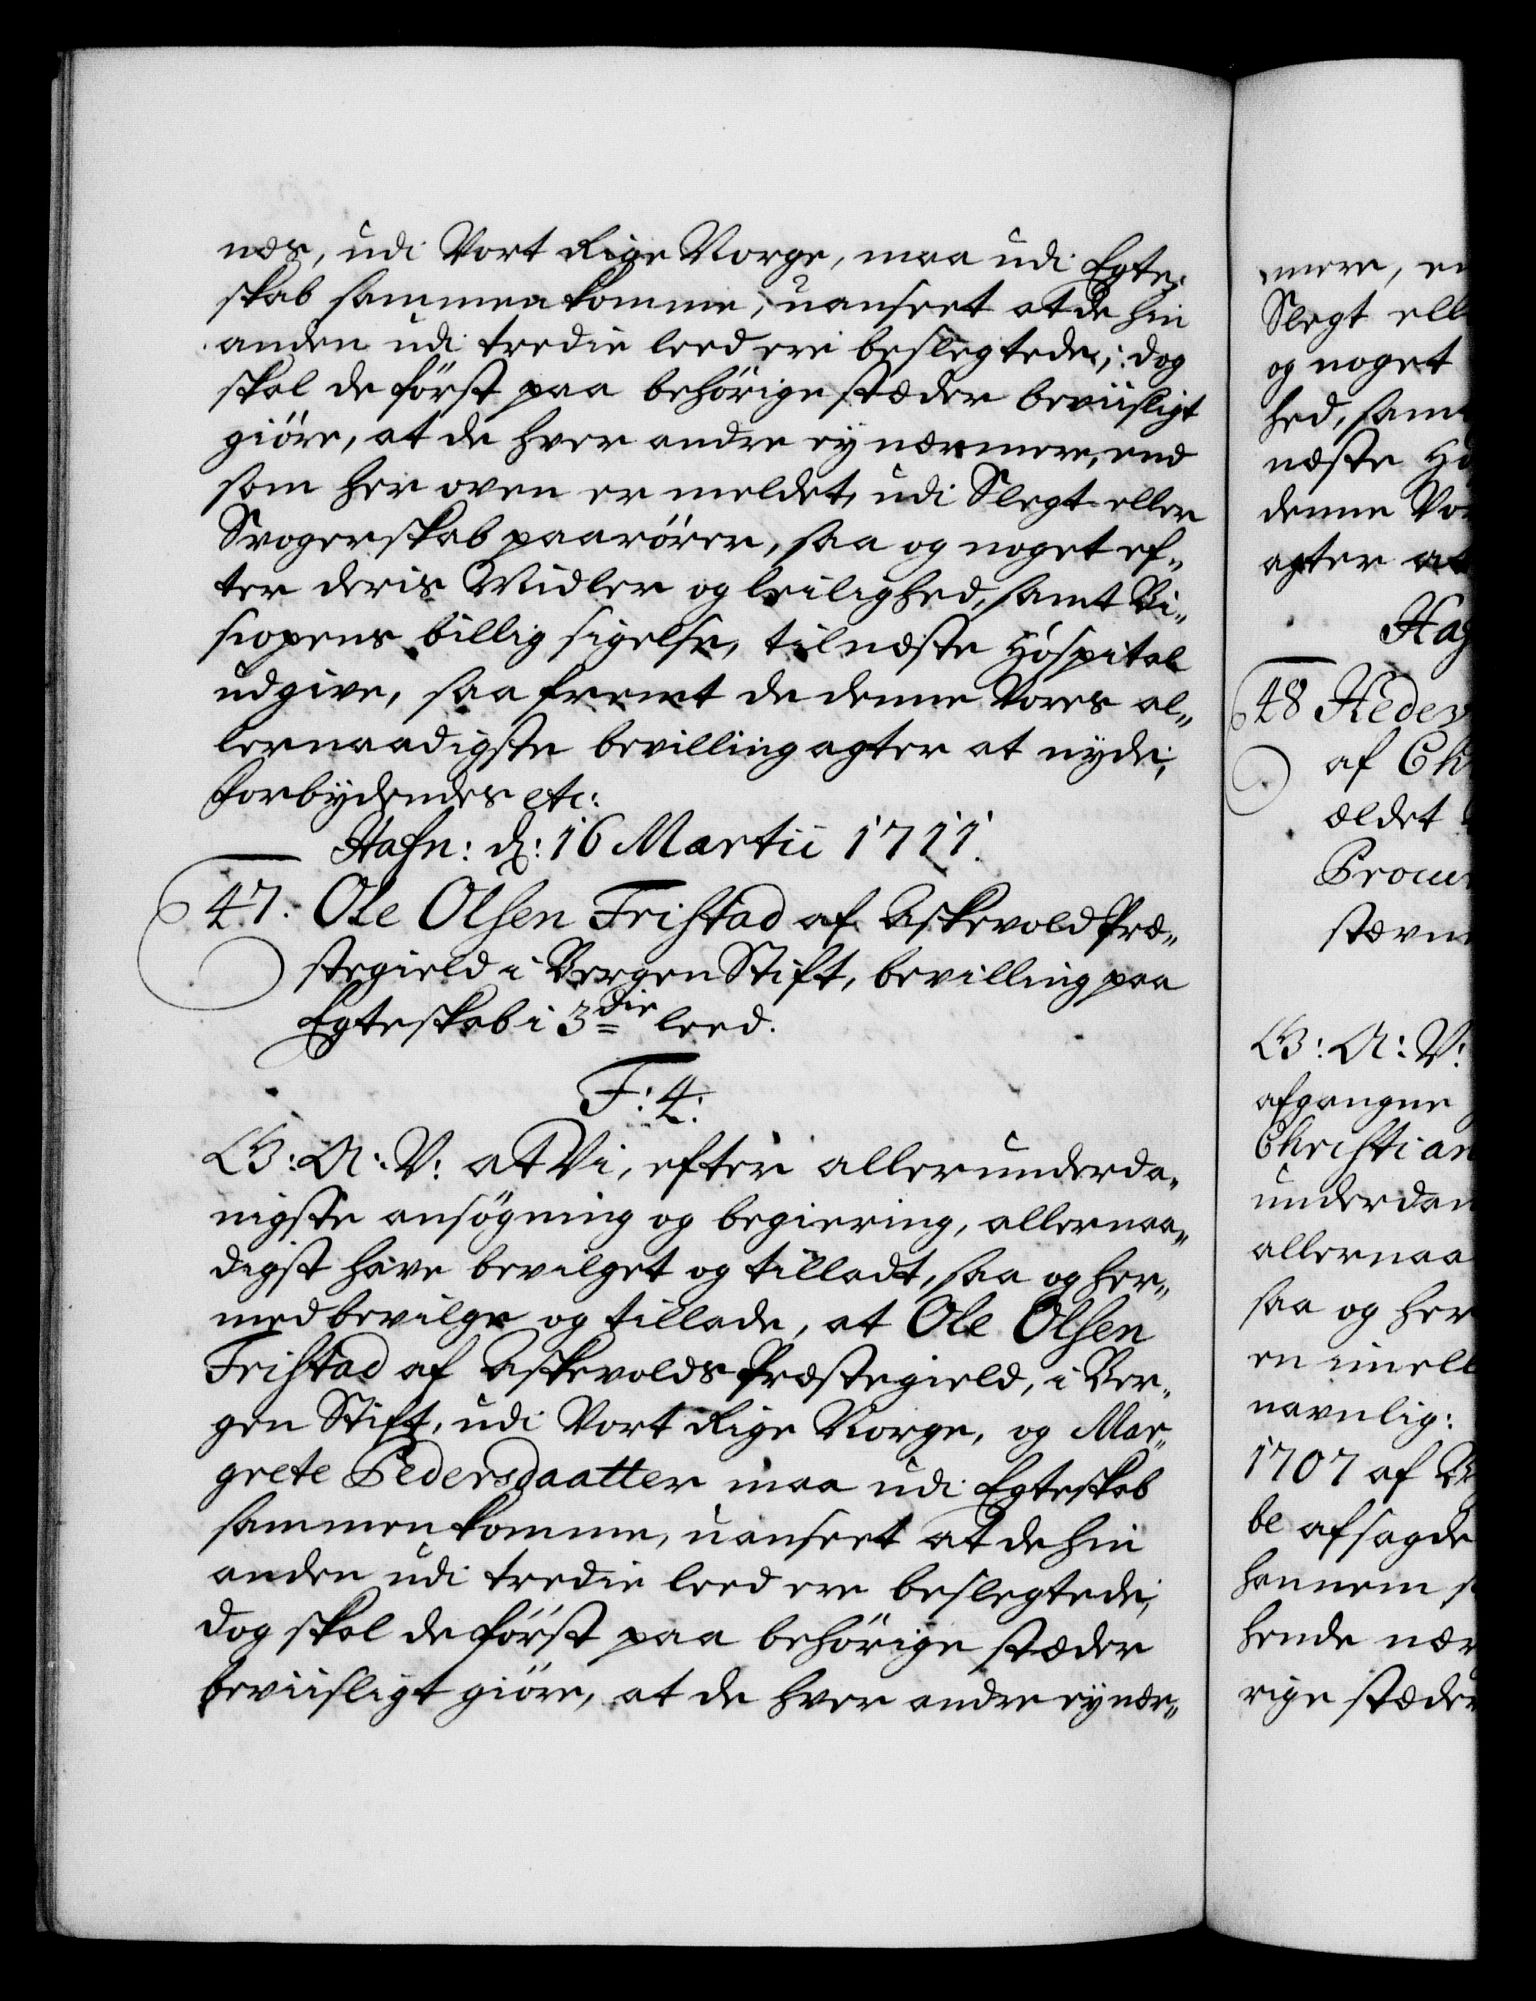 nes, udi Vort Rige Norge, maa udi Egte-
skab sammenkomme, uanseet at de hin
anden udi tredie leed ere beslegtede; dog
skal de först paa behörige stæder beviisligt
giöre, at de hver andre ey nærmere, end
som her oven er meldet, udi Slegt eller
Svogerskab paarörer, saa og noget ef-
ter deris Midler og leilighed, samt Bi-
scopens billig sigelse, til næste Hospital
udgive, saa fremt de denne Vores al-
lernaadigste bevilling agter at nyde;
Forbydendes etc:
Hafn: d: 16 Martii 1711.
47. Ole Olsen Fristad af Askevold Præ-
stegield i Bergen Stift, bevilling paa
Egteskab i 3die leed.
F: 4:
G: A: V: at Vi, efter allerunderda-
nigste ansögning og begiering, allernaa-
digst have bevilget og tilladt, saa og her-
med bevilge og tillade, at Ole Olsen
Fristad af Askevolds Præstegield, i Ber-
gen Stift, udi Vort Rige Norge, og Mar-
grete Pedersdaatter maa udi Egteskab
sammenkomme, uanseet at de hin
anden udi tredie leed ere beslegtede;
dog skal de först paa behörige stæder
beviisligt giöre, at de hver andre ey nær-
mere, en
Slegt ell
og noget
hed, samt
næste Ho
denne Vor
agter at
Haf
48 Hedev
af Ch
ældet
Procur
stævn
G: A: V:
afgangne
Christian
underdan
allernaa
saa og her
en imell
navnlig:
1707 af
be afsagde
hannem s
hende nær
rige stæder